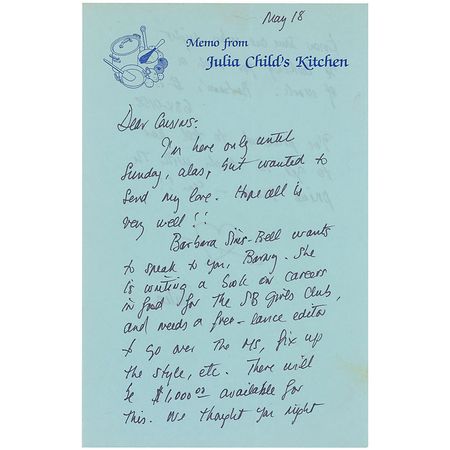 May 18
Memo from
Julia Child's Kitchen
Dear Cousins:
I'm here only until
Sunday, alas, but wanted to
send my love. Hope all is
very well!!
Barbara Sims-Bell wants
to speak to you, Barney. She
is writing a book on careers
in food for the SB Girls Club,
and needs a free-lance editor
to go over the MS, fix up
the style, etc. There will
be $1,000.00 available for
this. We thought you might